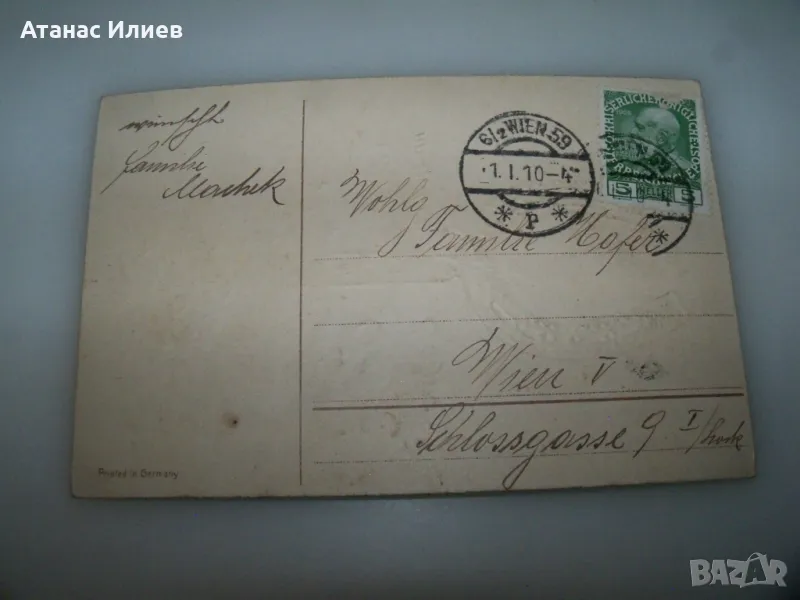 Атанас Илиев
wünscht
Familie
Machek
Wohlg
Familie Hofer
Wien V
Schlossgasse 9 I/Stock
6/2 WIEN 59
1. I. 10-4
* P *
5 HELLER 5
Printed in Germany
BAZAR